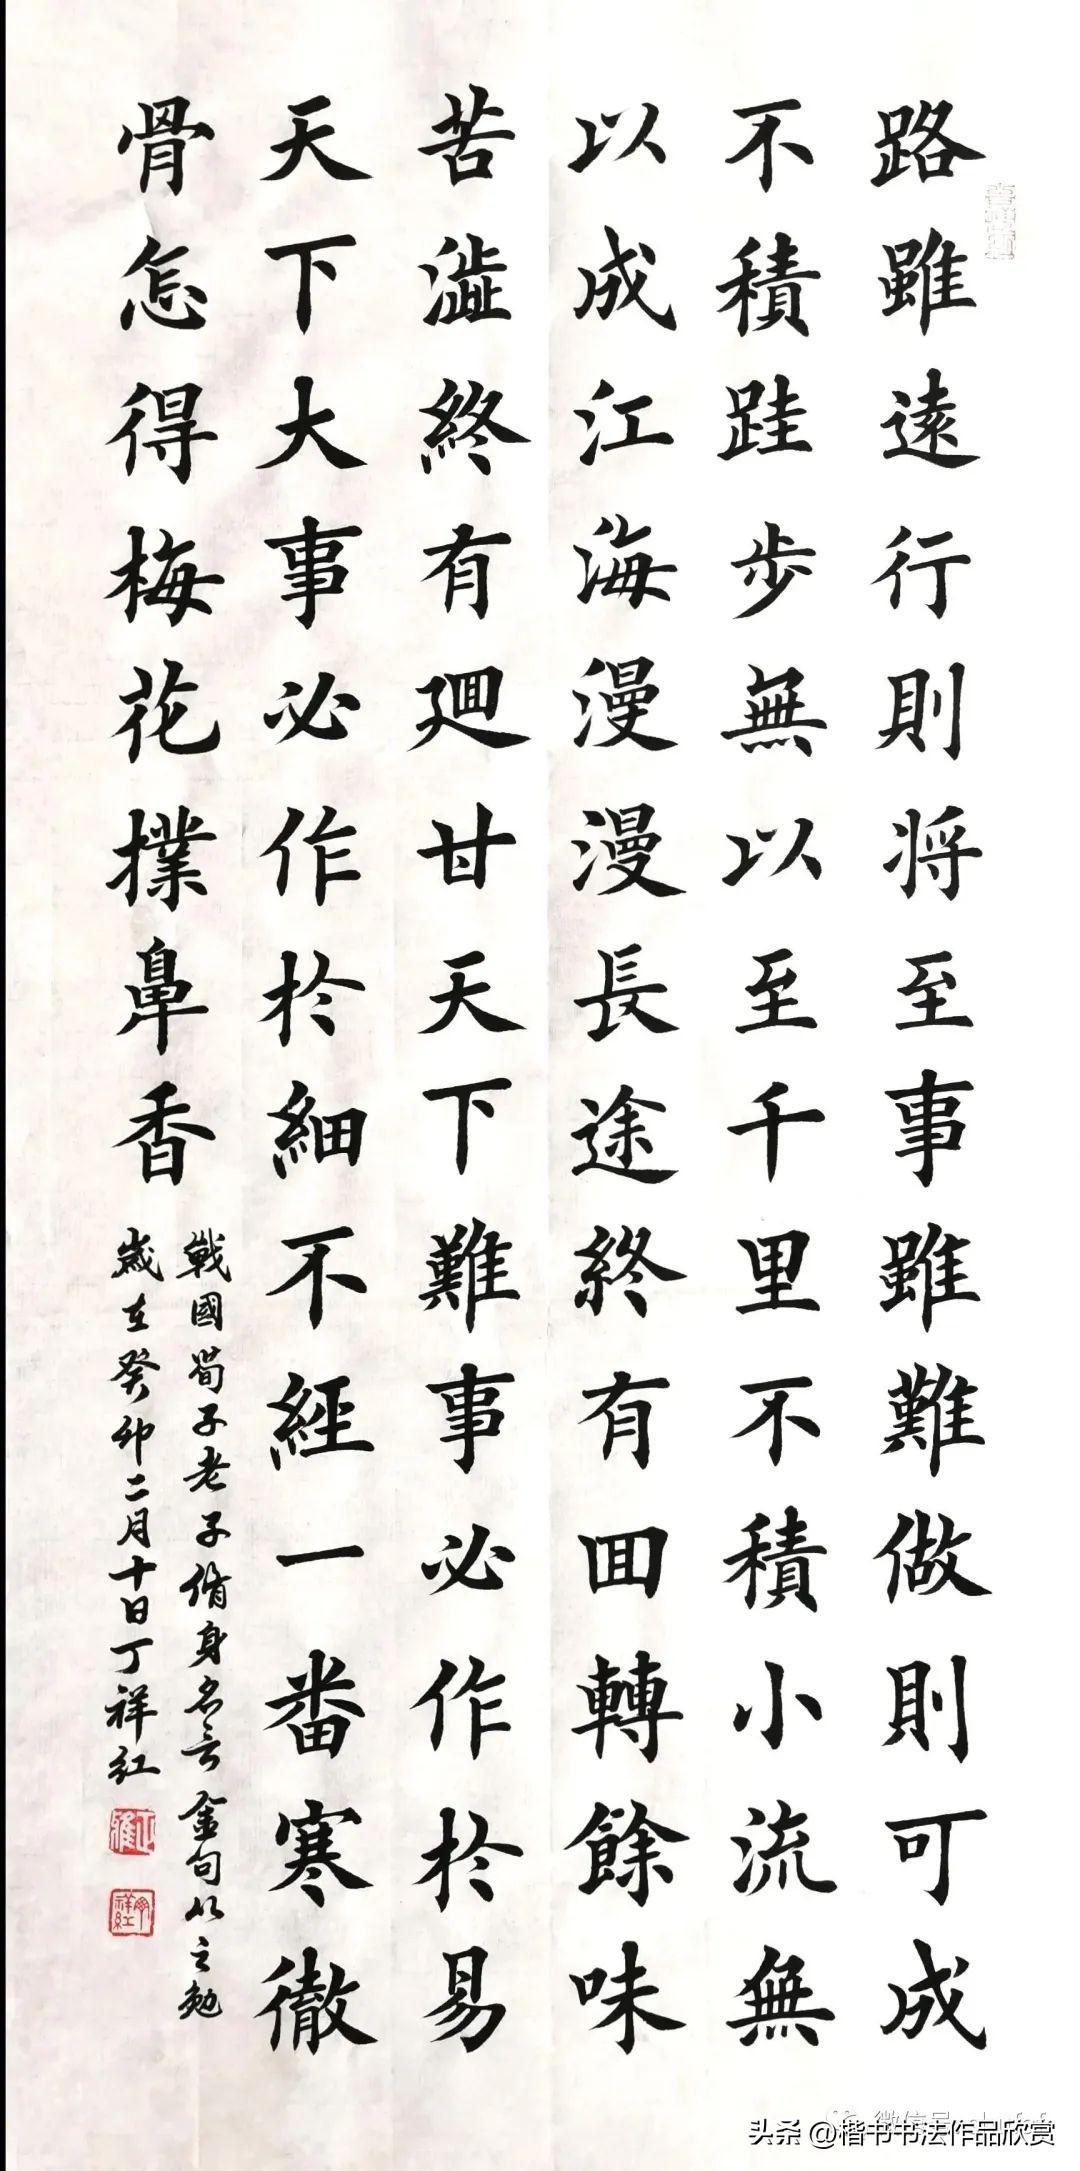 路雖遠行則将至事雖難做則可成
不積跬步無以至千里不積小流無
以成江海漫漫長途終有回轉餘味
苦澁終有廻甘天下難事必作於易
天下大事必作於細不經一番寒徹
骨怎得梅花撲鼻香
戰國荀子老子脩身名言金句以之勉
歲在癸卯二月十日丁祥紅
头条 @楷书书法作品欣赏